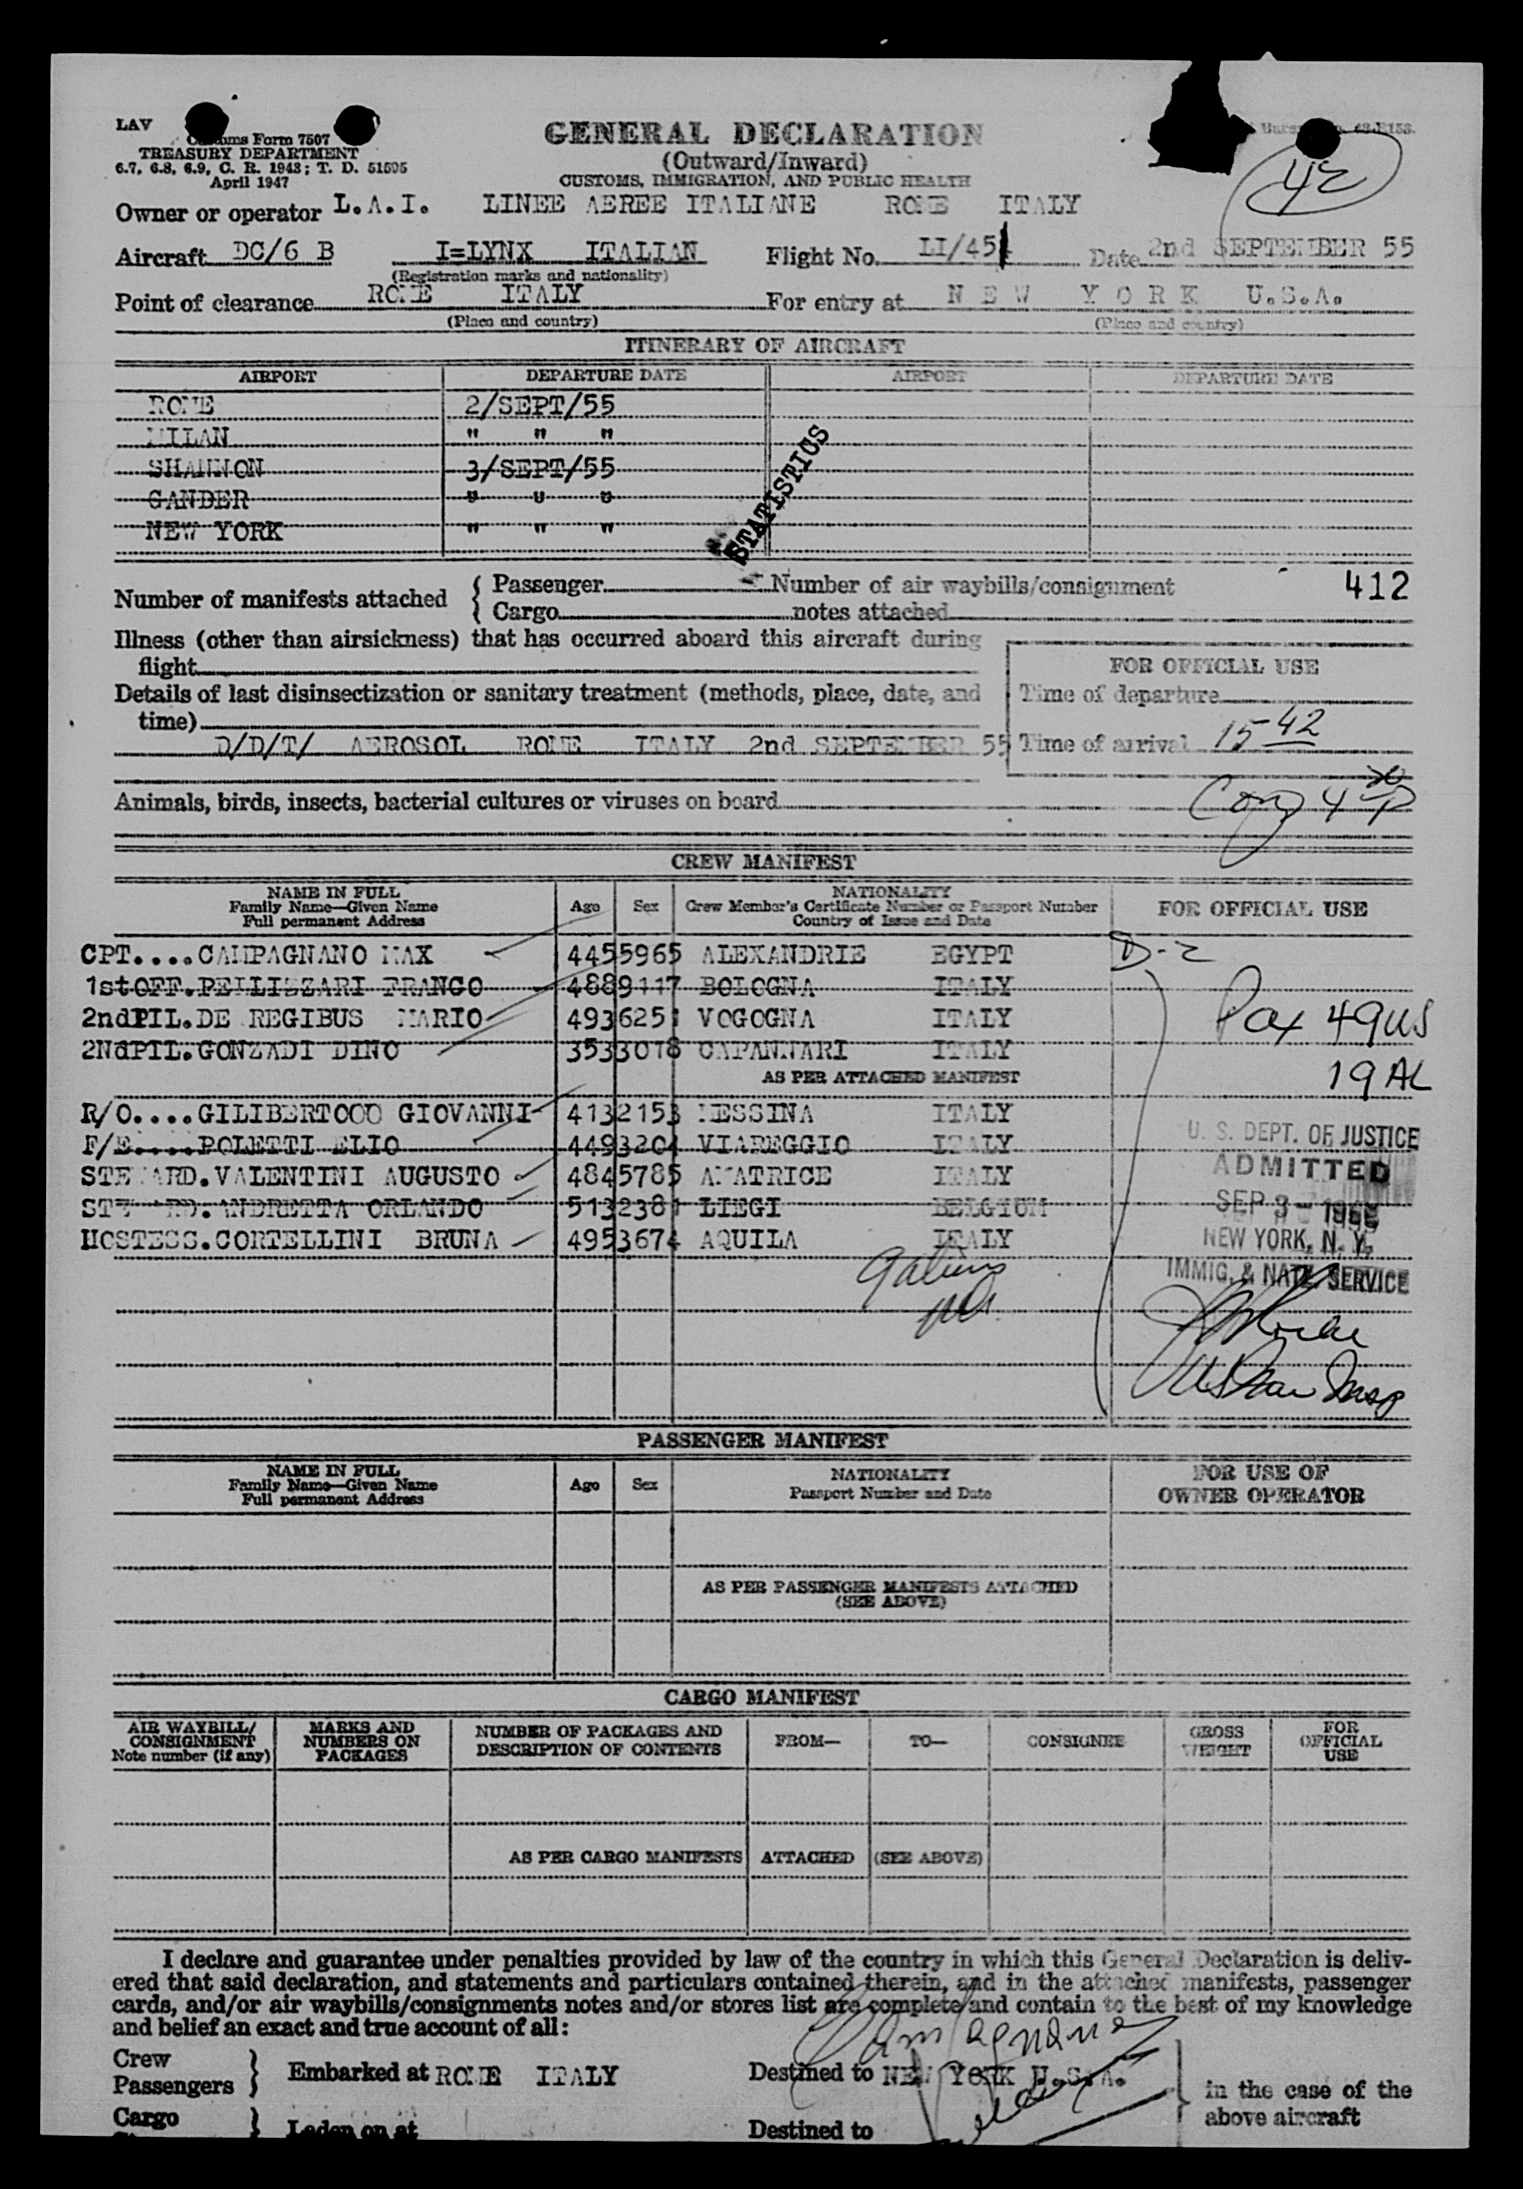 LAV
Customs Form 7507
TREASURY DEPARTMENT
6.7, 6.8, 6.9, C. R. 1943; T. D. 51595
April 1947
GENERAL DECLARATION
(Outward/Inward)
CUSTOMS, IMMIGRATION, AND PUBLIC HEALTH
42
Owner or operator L.A.I. LINEE AEREE ITALIANE ROME ITALY
Aircraft DC/6 B I=LYNX ITALIAN Flight No. LI/451 Date 2nd SEPTEMBER 55
(Registration marks and nationality)
Point of clearance ROME ITALY For entry at N E W Y O R K U.S.A.
(Place and country) (Place and country)
ITINERARY OF AIRCRAFT
AIRPORT DEPARTURE DATE AIRPORT DEPARTURE DATE
ROME 2/SEPT/55
MILAN " " "
SHANNON 3/SEPT/55
GANDER " " "
NEW YORK " " "
STATISTICS
Number of manifests attached { Passenger Number of air waybills/consignment 412
{ Cargo notes attached
Illness (other than airsickness) that has occurred aboard this aircraft during
flight
FOR OFFICIAL USE
Details of last disinsectization or sanitary treatment (methods, place, date, and
time)
Time of departure
D/D/T/ AEROSOL ROME ITALY 2nd SEPTEMBER 55 Time of arrival 15 42
Animals, birds, insects, bacterial cultures or viruses on board
CREW MANIFEST
NAME IN FULL
Family Name—Given Name
Full permanent Address
Age Sex
NATIONALITY
Crew Member's Certificate Number or Passport Number
Country of Issue and Date
FOR OFFICIAL USE
CPT....CAMPAGNANO MAX 4455965 ALEXANDRIE EGYPT D-2
1stOFF.PELLIZZARI FRANCO 4889117 BOLOGNA ITALY
2ndPIL.DE REGIBUS MARIO 4936251 VOGOGNA ITALY Pax 49 US
2NdPIL.GONZADI DINO 3533078 CAPANNARI ITALY
AS PER ATTACHED MANIFEST 19 AL
R/O....GILIBERTOOO GIOVANNI 4132153 MESSINA ITALY
F/E....POLETTI ELIO 4493204 VIAREGGIO ITALY
STEWARD.VALENTINI AUGUSTO 4845785 AMATRICE ITALY
STEWARD.ANDRETTA ORLANDO 5132381 LIEGI BELGIUM
HOSTESS.CORTELLINI BRUNA 4953674 AQUILA ITALY
U. S. DEPT. OF JUSTICE
ADMITTED
SEP 3 - 1955
NEW YORK, N. Y.
IMMIG. & NATZ. SERVICE
PASSENGER MANIFEST
NAME IN FULL
Family Name—Given Name
Full permanent Address
Age Sex
NATIONALITY
Passport Number and Date
FOR USE OF
OWNER OPERATOR
AS PER PASSENGER MANIFESTS ATTACHED
(SEE ABOVE)
CARGO MANIFEST
AIR WAYBILL/
CONSIGNMENT
Note number (if any)
MARKS AND
NUMBERS ON
PACKAGES
NUMBER OF PACKAGES AND
DESCRIPTION OF CONTENTS
FROM—
TO—
CONSIGNEE
GROSS
WEIGHT
FOR
OFFICIAL
USE
AS PER CARGO MANIFESTS ATTACHED (SEE ABOVE)
I declare and guarantee under penalties provided by law of the country in which this General Declaration is deliv-
ered that said declaration, and statements and particulars contained therein, and in the attached manifests, passenger
cards, and/or air waybills/consignments notes and/or stores list are complete and contain to the best of my knowledge
and belief an exact and true account of all:
Campagnano
Crew
Passengers } Embarked at ROME ITALY Destined to NEW YORK U.S.A. } in the case of the
above aircraft
Cargo } Laden on at Destined to